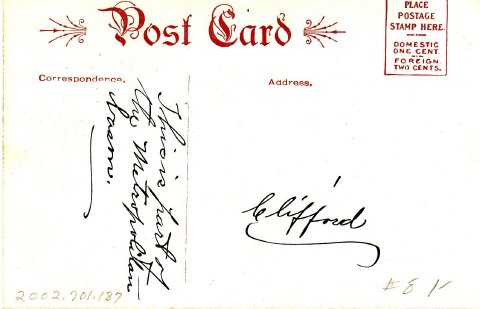 Post Card
PLACE
POSTAGE
STAMP HERE.
DOMESTIC
ONE CENT.
FOREIGN
TWO CENTS.
Correspondence.
Address.
This is part of
the Metropolitan
Clifford
2002.701.187
#8